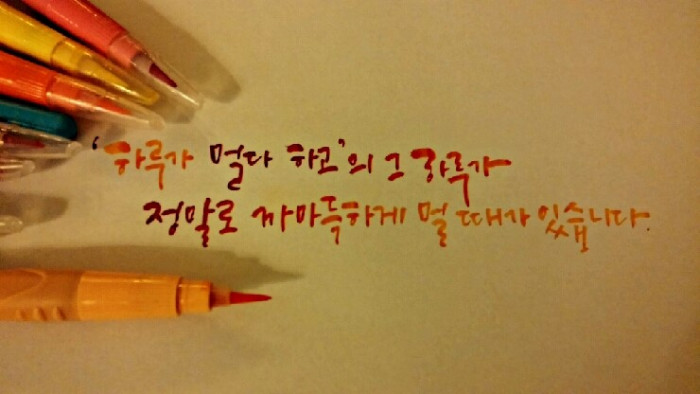 '하루가 멀다 하고'의 그 하루가
정말로 까마득하게 멀 때가 있습니다.